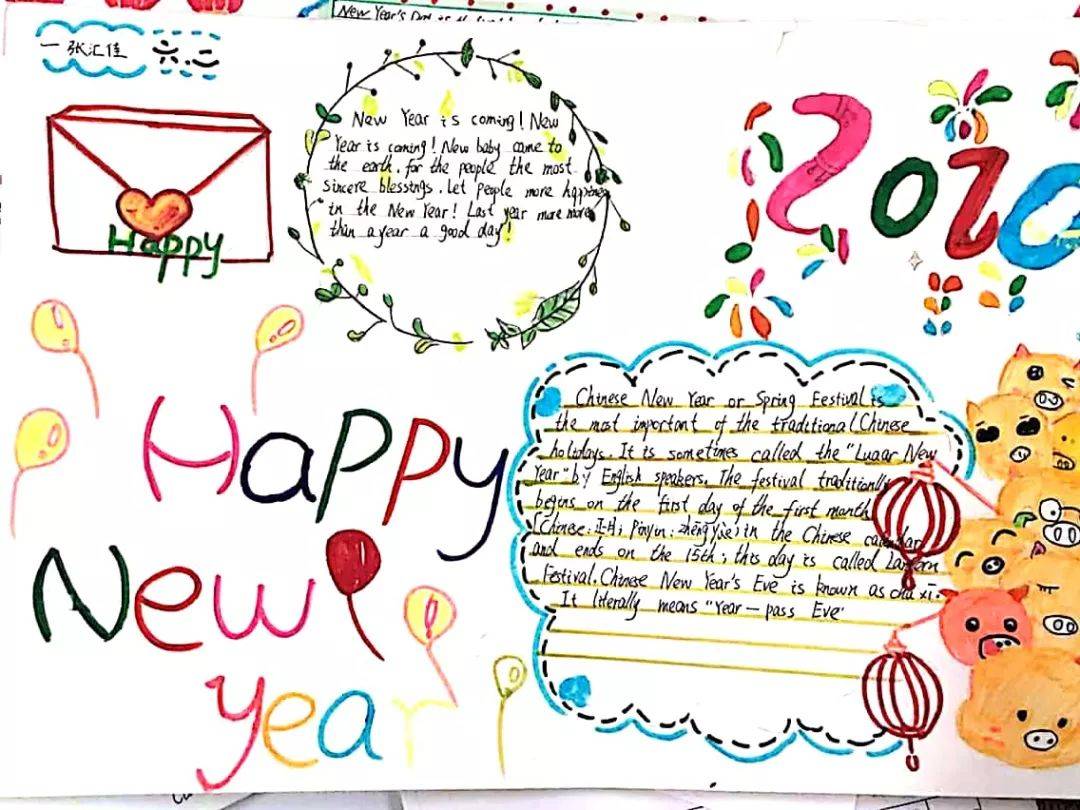 New Year's Day
一 张汇佳
六.二
Happy
New Year is coming! New
Year is coming! New baby came to
the earth. for the people the most
sincere blesstngs. Let people more
in the New Year! Last year more more
than a year a good day!
2020
Happy
New
year
Chinese New Year or Spring Festival is
the most important of the traditional Chinese
holidays. It is sometimes called the "Lugar New
Year" by English speakers. The festival traditionally
begins on the first day of the first month
(Chinese: 正月; Pinyin: zhēng yuè) in the Chinese calendar
and ends on the 15th; this day is called Lantern
Festival. Chinese New Year's Eve is known as chú xī.
It literally means "Year-pass Eve"